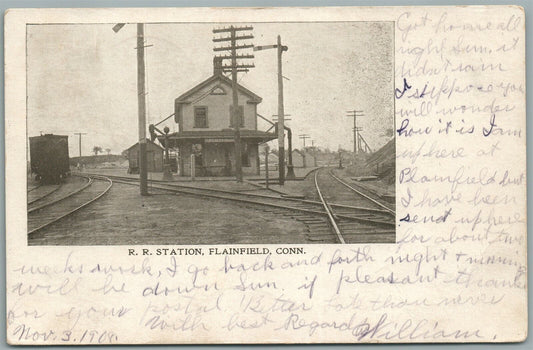 Got home all
right Sun. it
didn't rain
I suppose you
will wonder
how it is I am
up here at
Plainfield but
I have been
send up here
for about two
R. R. STATION, FLAINFIELD, CONN.
weeks work, I go back and forth night & morning
will be down Sun. if pleasant thanks
for your postal. Better late than never
Nov. 3. 1908. With best Regards William.